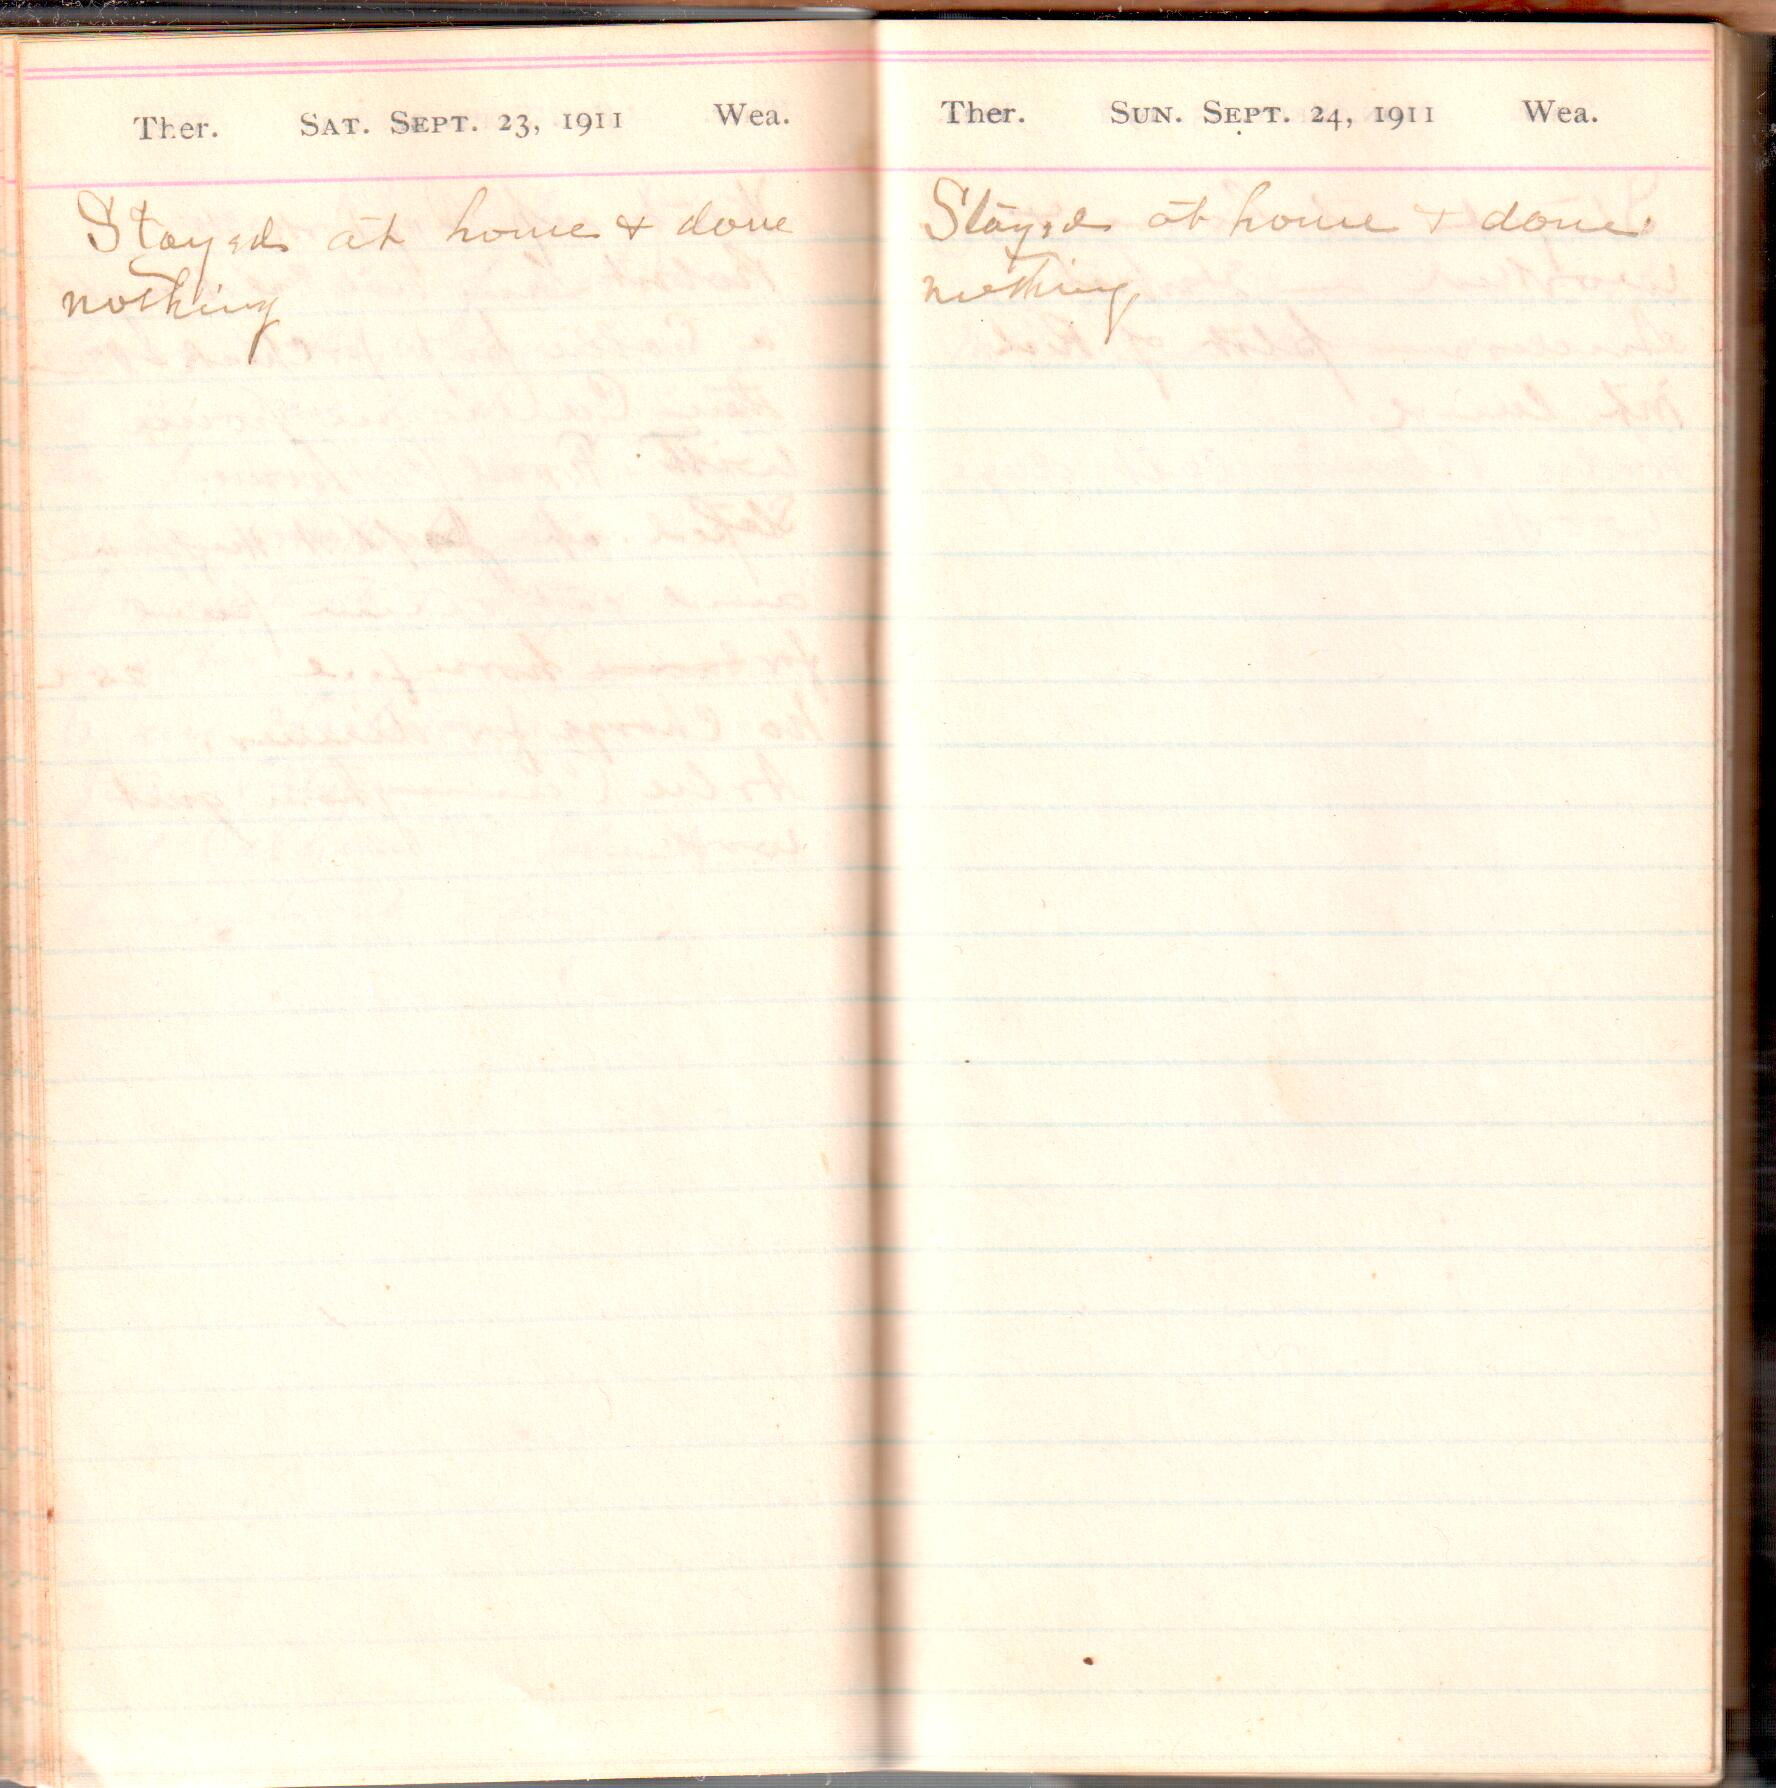 Ther. Sat. Sept. 23, 1911 Wea.
Stayed at home & done
nothing
Ther. Sun. Sept. 24, 1911 Wea.
Stayed at home & done
nothing